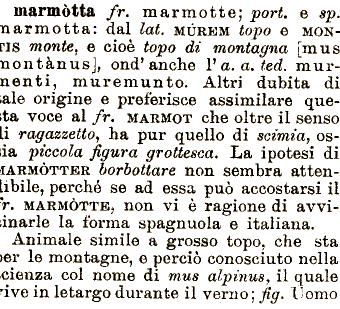 marmòtta fr. marmotte; port. e sp.
marmotta: dal lat. MÚREM topo e MON-
TIS monte, e cioè topo di montagna [mus
montànus], ond' anche l'a. a. ted. mur-
menti, muremunto. Altri dubita di
tale origine e preferisce assimilare que-
sta voce al fr. MARMOT che oltre il senso
di ragazzetto, ha pur quello di scimia, os-
sia piccola figura grottesca. La ipotesi di
MARMÒTTER borbottare non sembra atten-
dibile, perché se ad essa può accostarsi il
fr. MARMÒTTE, non vi è ragione di avvi-
cinarle la forma spagnuola e italiana.
Animale simile a grosso topo, che sta
per le montagne, e perciò conosciuto nella
scienza col nome di mus alpinus, il quale
vive in letargo durante il verno; fig. Uomo